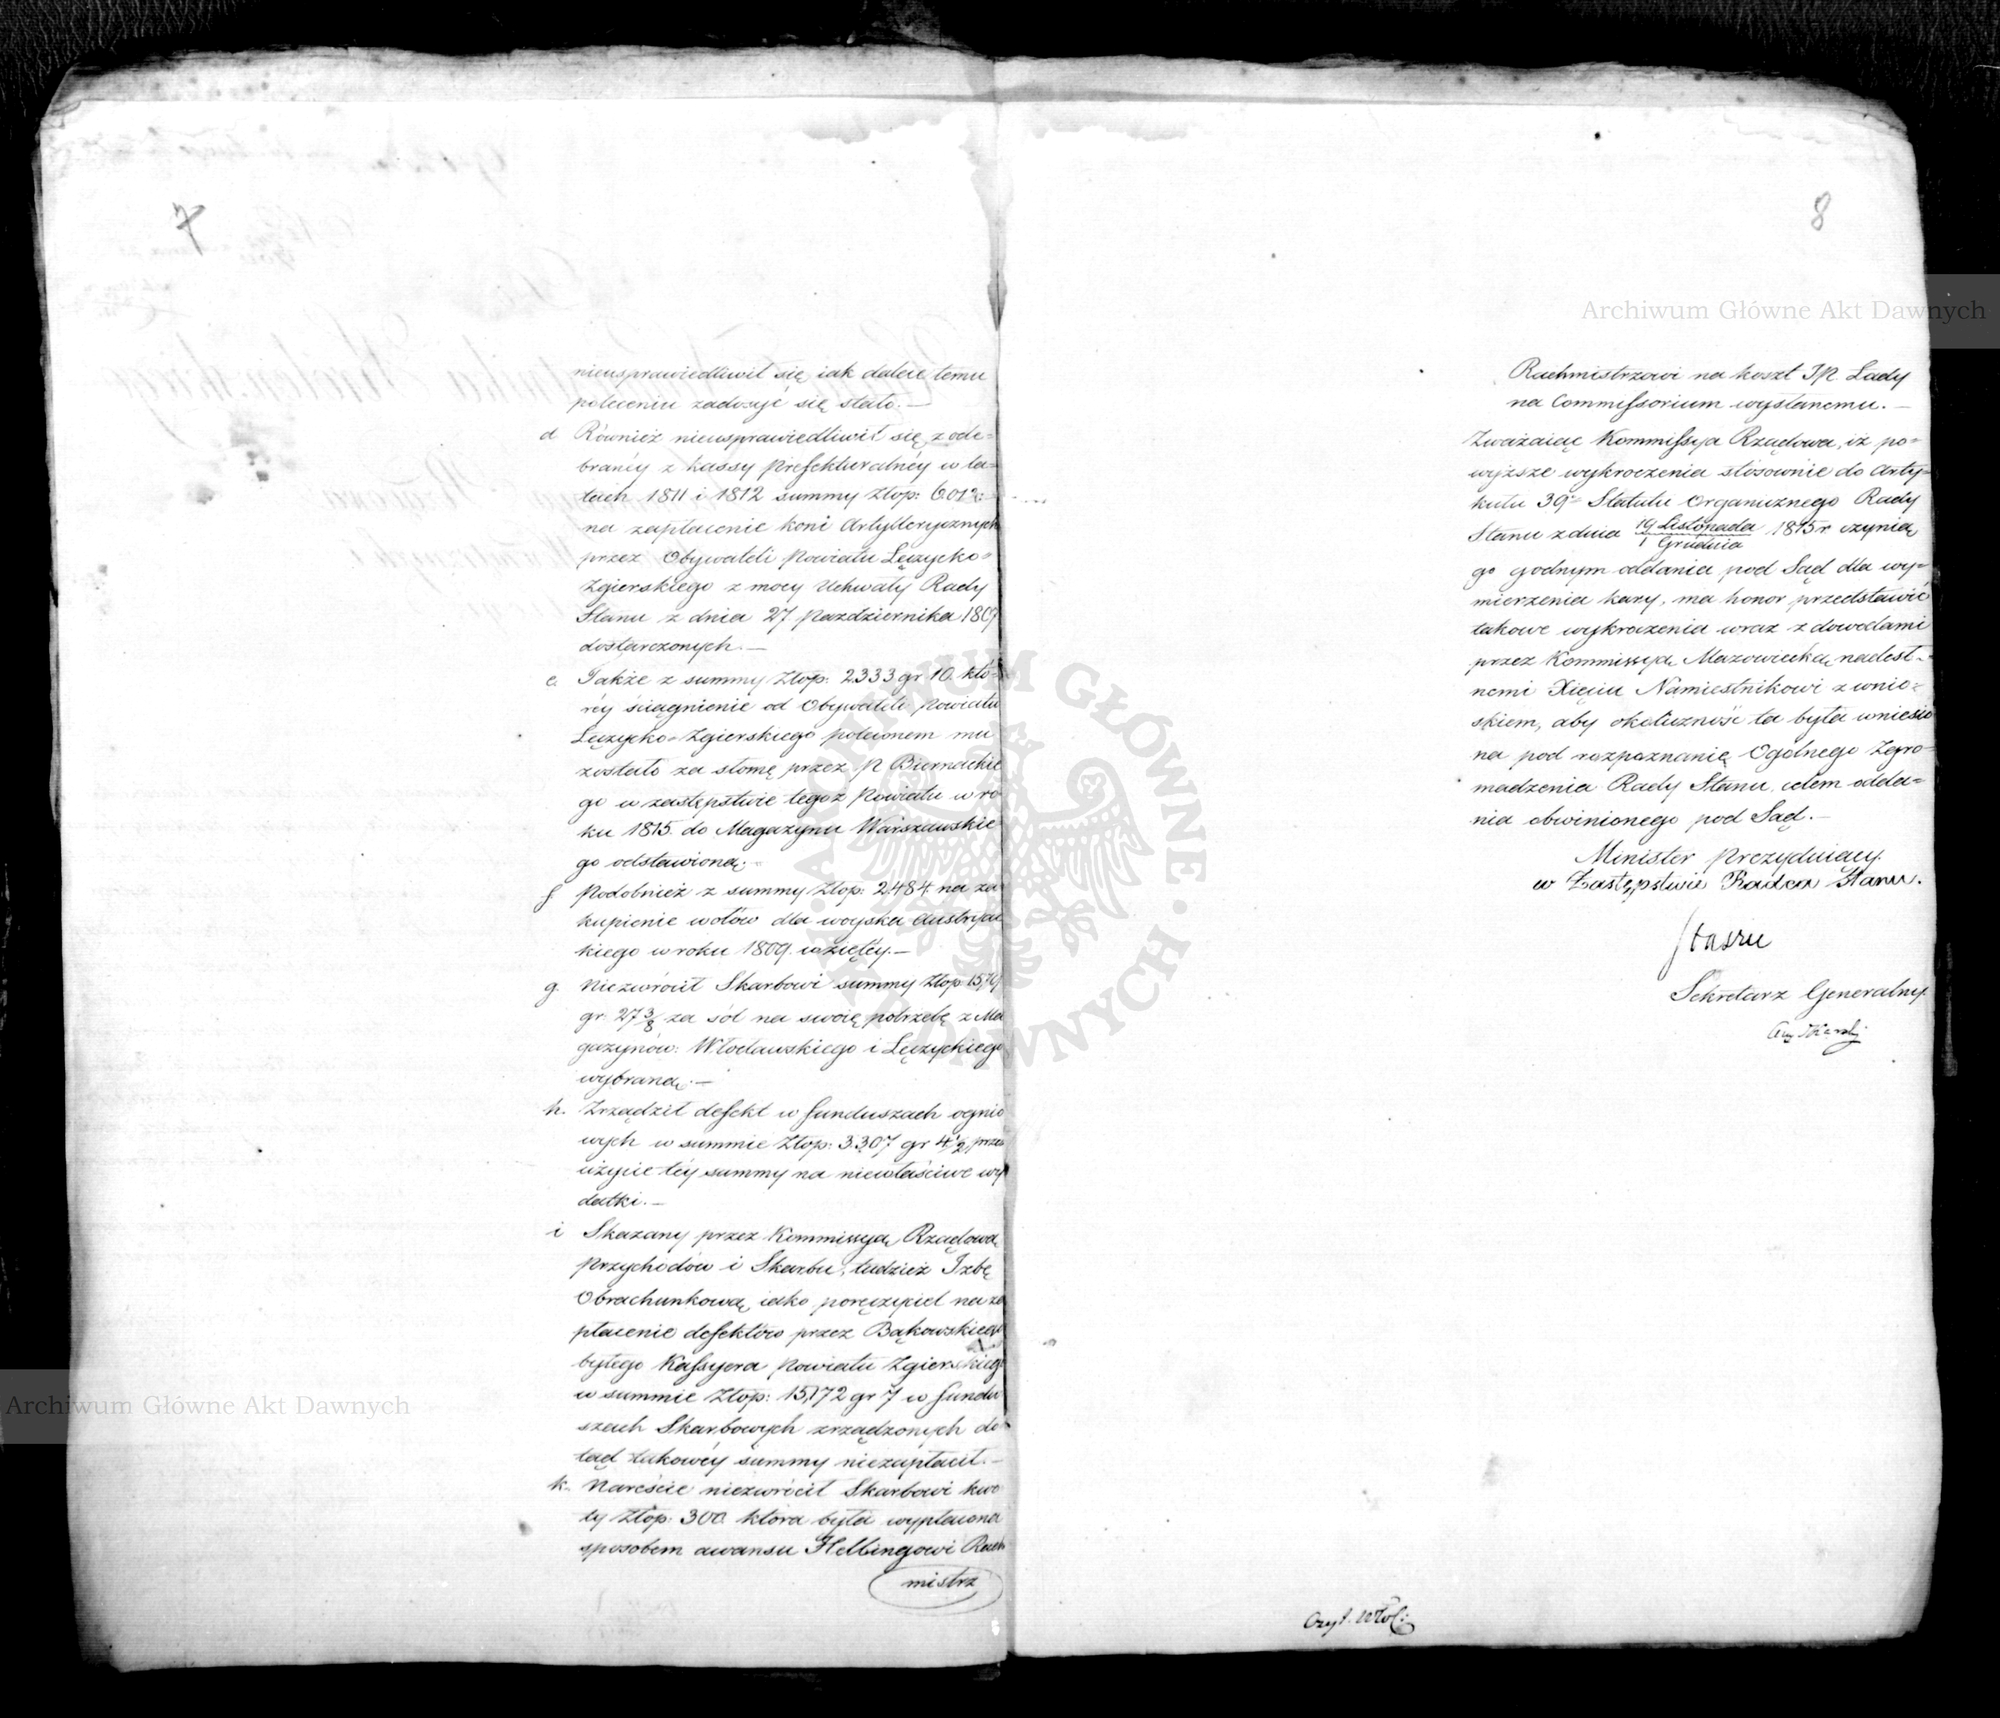 7
nieusprawiedliwił się iak dalece temu
poleceniu zadosyć się stało. —
d Również nieusprawiedliwił się z ode=
branéy z kassy Prefekturalnéy w la=
tach 1811 i 1812 summy Złop:
na zapłacenie koni Artyllerycznych
przez Obywateli Powiatu Łęczycko=
Zgierskiego z mocy Uchwały Rady
Stanu z dnia 27 Pazdziernika 1809
dostarczonych. —
e. Także z summy Złop: 2333 gr. 10. któ=
réy ściągnienie od Obywateli Powiatu
Łęczycko=Zgierskiego poleconem mu
zostało za słomę przez P. Biernackie
go w zastępstwie tegoż Powiatu w ro
ku 1815. do Magazynu Warszawskie
go odstawioną. —
f. Podobnież z summy Złop: 2484. na za
kupienie wołów dla woyska Austryac
kiego w roku 1809. wziętéy. —
g. Niezwrócił Skarbowi summy Złop:
gr: 27 3/8 za sól na swoię potrzebę z Ma
gazynów: Włocławskiego i Łęczyckiego
wybraną. —
h. Zrządził defekt w funduszach ognio
wych w summie Złop: 3307 gr 4 1/2, przez
użycie téy summy na niewłaściwe wy
datki. —
i Skazany przez Kommissyą Rządową
Przychodów i Skarbu, tudzież Izbę
Obrachunkową, iako poręczyciel na za
płacenie defektów przez Bąkowskiego
byłego Kassyera Powiatu Zgierskiego
w summie Złop: 15,172 gr 7 w fundu
szach Skarbowych zrządzonych do
tąd takowéy summy niezapłacił. —
k. Nareście niezwrócił Skarbowi kwo
ty Złop: 300. która była wypłacona
sposobem awansu Hellingowi Rach
mistrz
8
Rachmistrzowi na koszt JP. Lady
na Commissorium wysłanemu. —
Zważaiąc Kommissya Rządowa, iż po=
wyższe wykroczenia stósownie do Arty=
kułu 39º Statutu Organicznego Rady
Stanu z dnia 19 Listopada / 1 Grudnia 1815 r. czynią
go godnym oddania pod Sąd dla wy=
mierzenia kary, ma honor przedstawić
takowe wykroczenia wraz z dowodami
przez Kommissyą Mazowiecką nadesł=
nemi Xięciu Namiestnikowi z wnio=
skiem, aby okoliczność ta była wniesio
na pod rozpoznanie Ogólnego Zgro=
madzenia Rady Stanu, celem odda=
nia obwinionego pod Sąd. —
Minister Prezyduiący.
w Zastępstwie Radca Stanu.
Staszic
Sekretarz Generalny.
Archiwum Główne Akt Dawnych
Archiwum Główne Akt Dawnych
ARCHIWUM GŁÓWNE AKT DAWNYCH